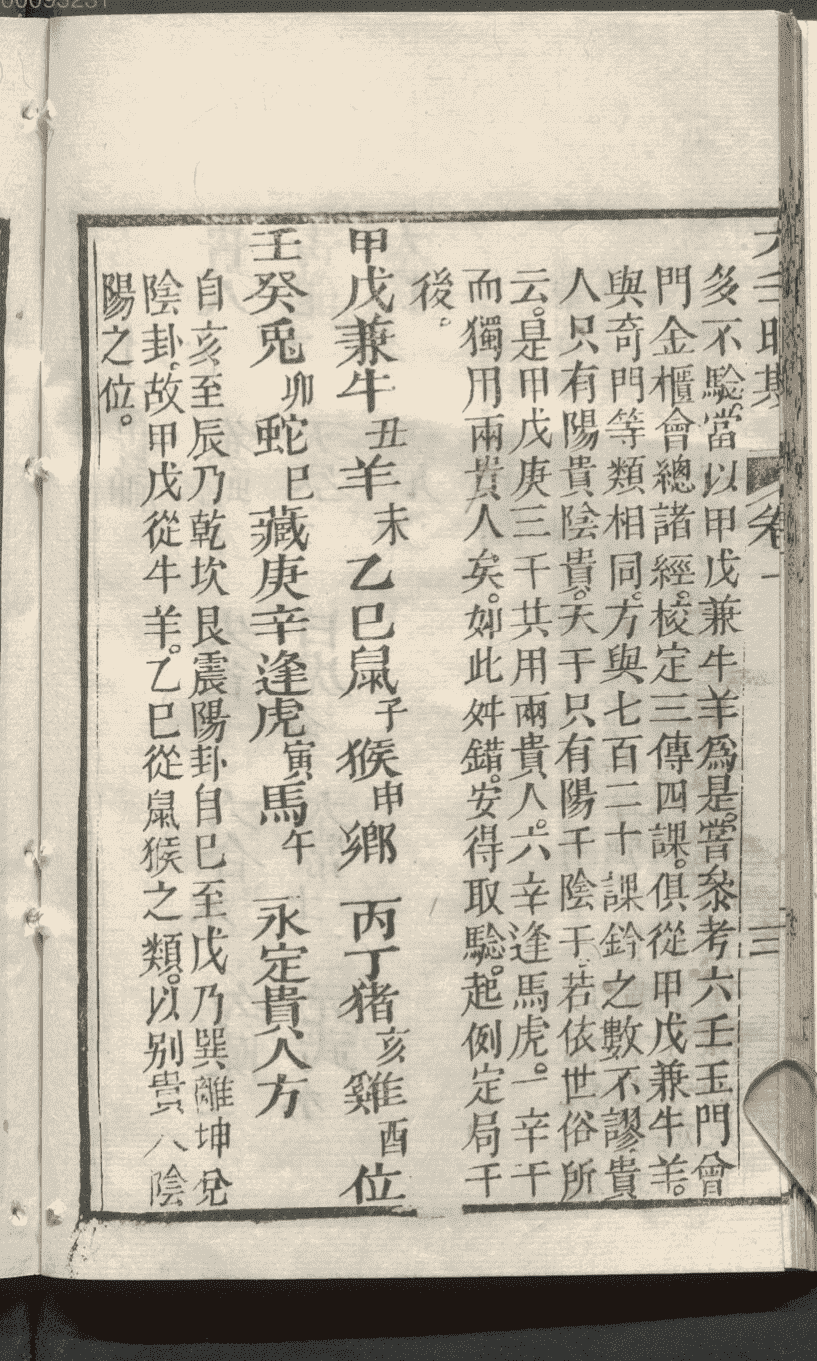 00093231
多不驗。當以甲戊兼牛羊爲是。嘗叅考六壬玉門曾
門金櫃會總諸經。校定三傳四課。俱從甲戊兼牛羊。
與奇門等類相同。方與七百二十課鈐之數不謬。貴
人只有陽貴陰貴。天干只有陽干陰干。若依世俗所
云。是甲戊庚三干共用兩貴人。六辛逢馬虎。一辛干
而獨用兩貴人矣。如此舛錯。安得取驗。起例定局于
後。
甲戊兼牛丑羊未乙巳鼠子猴申鄉 丙丁猪亥雞酉位
壬癸兎卯蛇巳藏庚辛逢虎寅馬午 永定貴人方
自亥至辰乃乾坎艮震陽卦自巳至戌乃巽離坤兌
陰卦。故甲戊從牛羊。乙巳從鼠猴之類。以别貴人陰
陽之位。